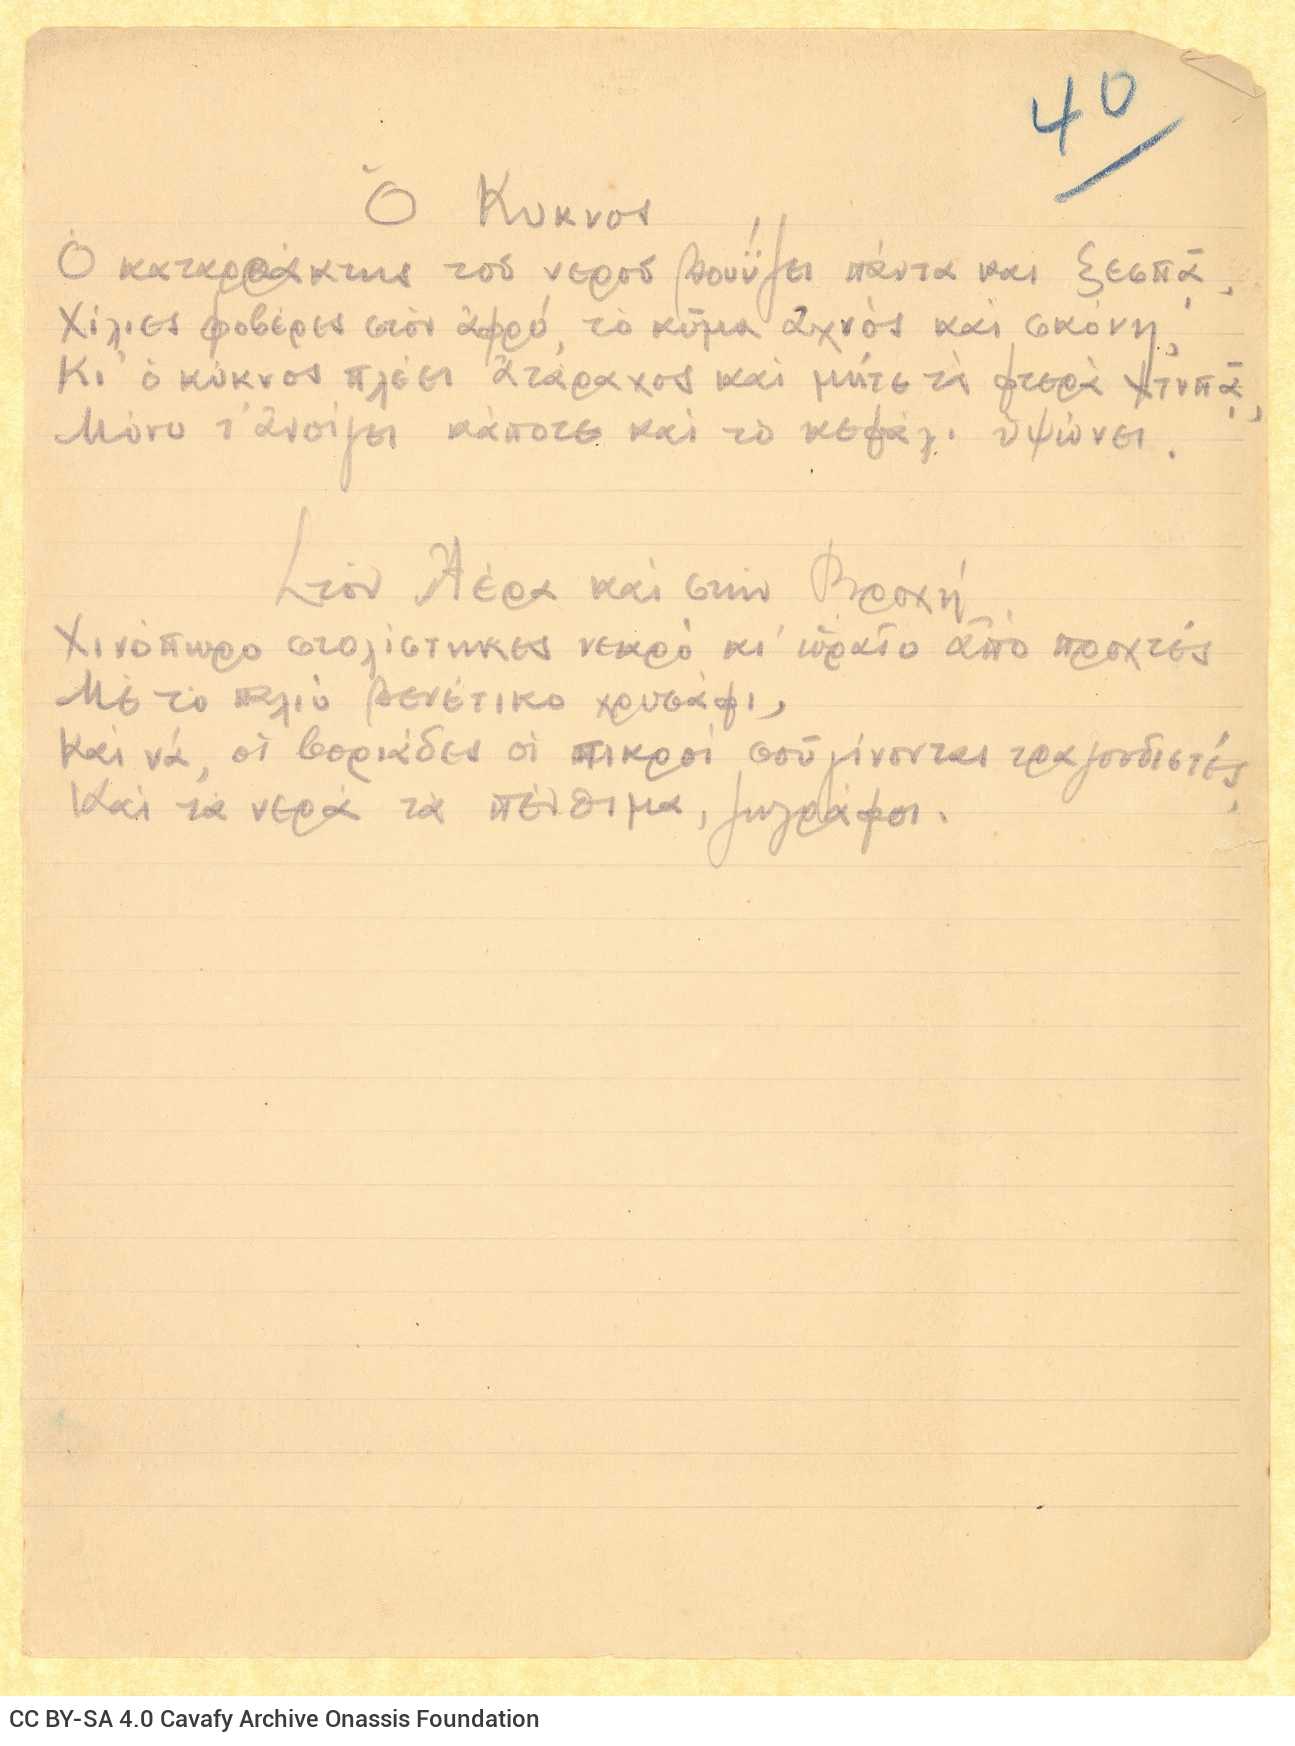 40
Ὁ Κυκνος
Ὁ καταρράκτης τοῦ νεροῦ βουΐζει πάντα και ξεσπᾶ,
Χίλιες φοβέρες στὸν ἀφρό, τὸ κῦμα ἀχνὸς καὶ σκόνη,
Κι' ὁ κύκνος πλέει ἀτάραχος καὶ μήτε τὰ φτερὰ χτυπᾶ,
Μόνο τ' ἀνοίγει κάποτε καὶ τὸ κεφάλι ὑψώνει.
Στὸν Ἀέρα καὶ στὴν Βροχή.
Χινόπωρο στολίστηκες νεκρὸ κι' ὡραῖο ἀπὸ προχτές
Μὲ τὸ παλιὸ βενέτικο χρυσάφι,
Καὶ νά, οἱ βοριάδες οἱ πικροί σοῦ γίνονται τραγουδιστές,
Καὶ τὰ νερὰ τὰ πένθιμα, ζωγράφοι.
CC BY-SA 4.0 Cavafy Archive Onassis Foundation